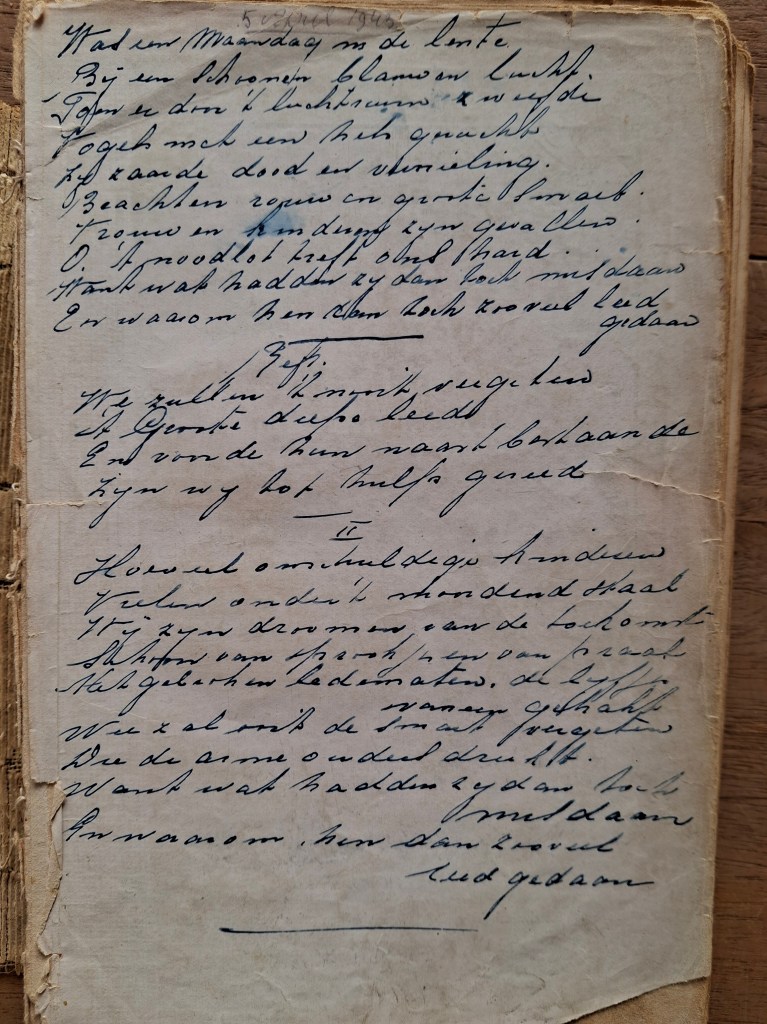 5 April 1943
Was een Maandag in de lente.
Bij een schoonen blauwen lucht.
Toen er door 't luchtruim zweefde
Vogels met een hels gerucht
Zy zaaide dood en vernieling.
Brachten rouw en grote smart.
Vrouw en kinderen zyn gevallen.
O. 't noodlot treft ons hard.
Want wat hadden zy dan toch misdaan
En waarom hen dan toch zooveel leed
gedaan
Refr.
We zullen 't nooit vergeten
't Groote diepe leed
En voor de hun naastbestaande
Zijn wy tot hulp gereed
II
Hoeveel onschuldige kinderen
Vielen onder 't moordend staal
Wij zyn droomen van de toekomst
Schoon van sprookjen van praal
Met gebroken ledematen. de lyfjes
vaneen gehakt
Wie zal ooit de smart vergeten
Die de arme ouders drukt.
Want wat hadden zy dan toch
misdaan
En waarom hen dan zooveel
leed gedaan